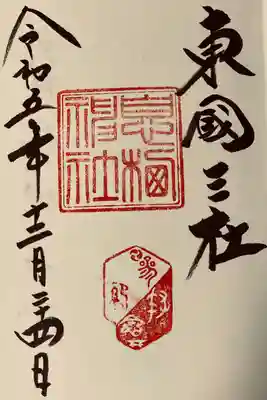 東國三社
息栖神社
令和五年十二月二十四日